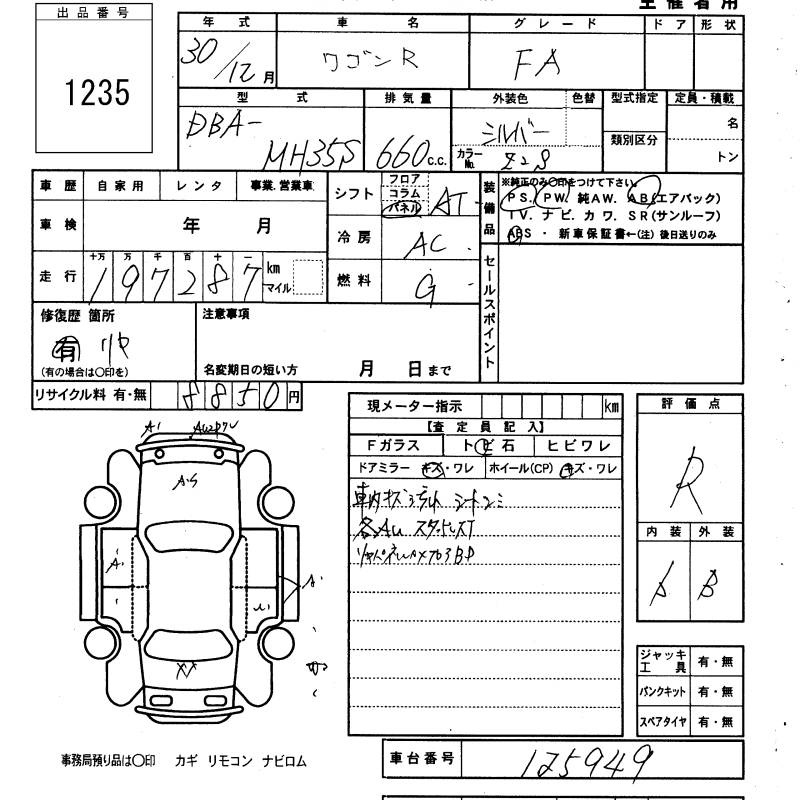 主催者用
出品番号
1235
年式 車名 グレード ドア 形状
30/12月 ワゴンR FA
型式 排気量 外装色 色替 型式指定 定員・積載
DBA-
MH35S 660c.c. シルバー 類別区分 名
カラーNo. Z2S トン
車歴 自家用 レンタ 事業.営業車
シフト フロア コラム パネル AT
装備品 ※純正のみ〇印をつけて下さい。
PS. PW. 純AW. AB(エアバッグ)
TV. ナビ. カワ. SR(サンルーフ)
ABS・新車保証書←(注) 後日送りのみ
車検 年 月
冷房 AC
走行 十万 万 千 百 十 一
197287 km マイル
燃料 G
セールスポイント
修復歴 箇所
有 リヤ
(有の場合は〇印を)
注意事項
名変期日の短い方 月 日まで
リサイクル料 有・無 8850円
現メーター指示 km
評価点
R
【査定員記入】
Fガラス トビ石 ヒビワレ
ドアミラー キズ・ワレ ホイール(CP) キズ・ワレ
各AU スタッドレスT
内装 外装
A B
A1
ジャッキ工具 有・無
パンクキット 有・無
スペアタイヤ 有・無
事務局預り品は〇印 カギ リモコン ナビロム
車台番号 125949